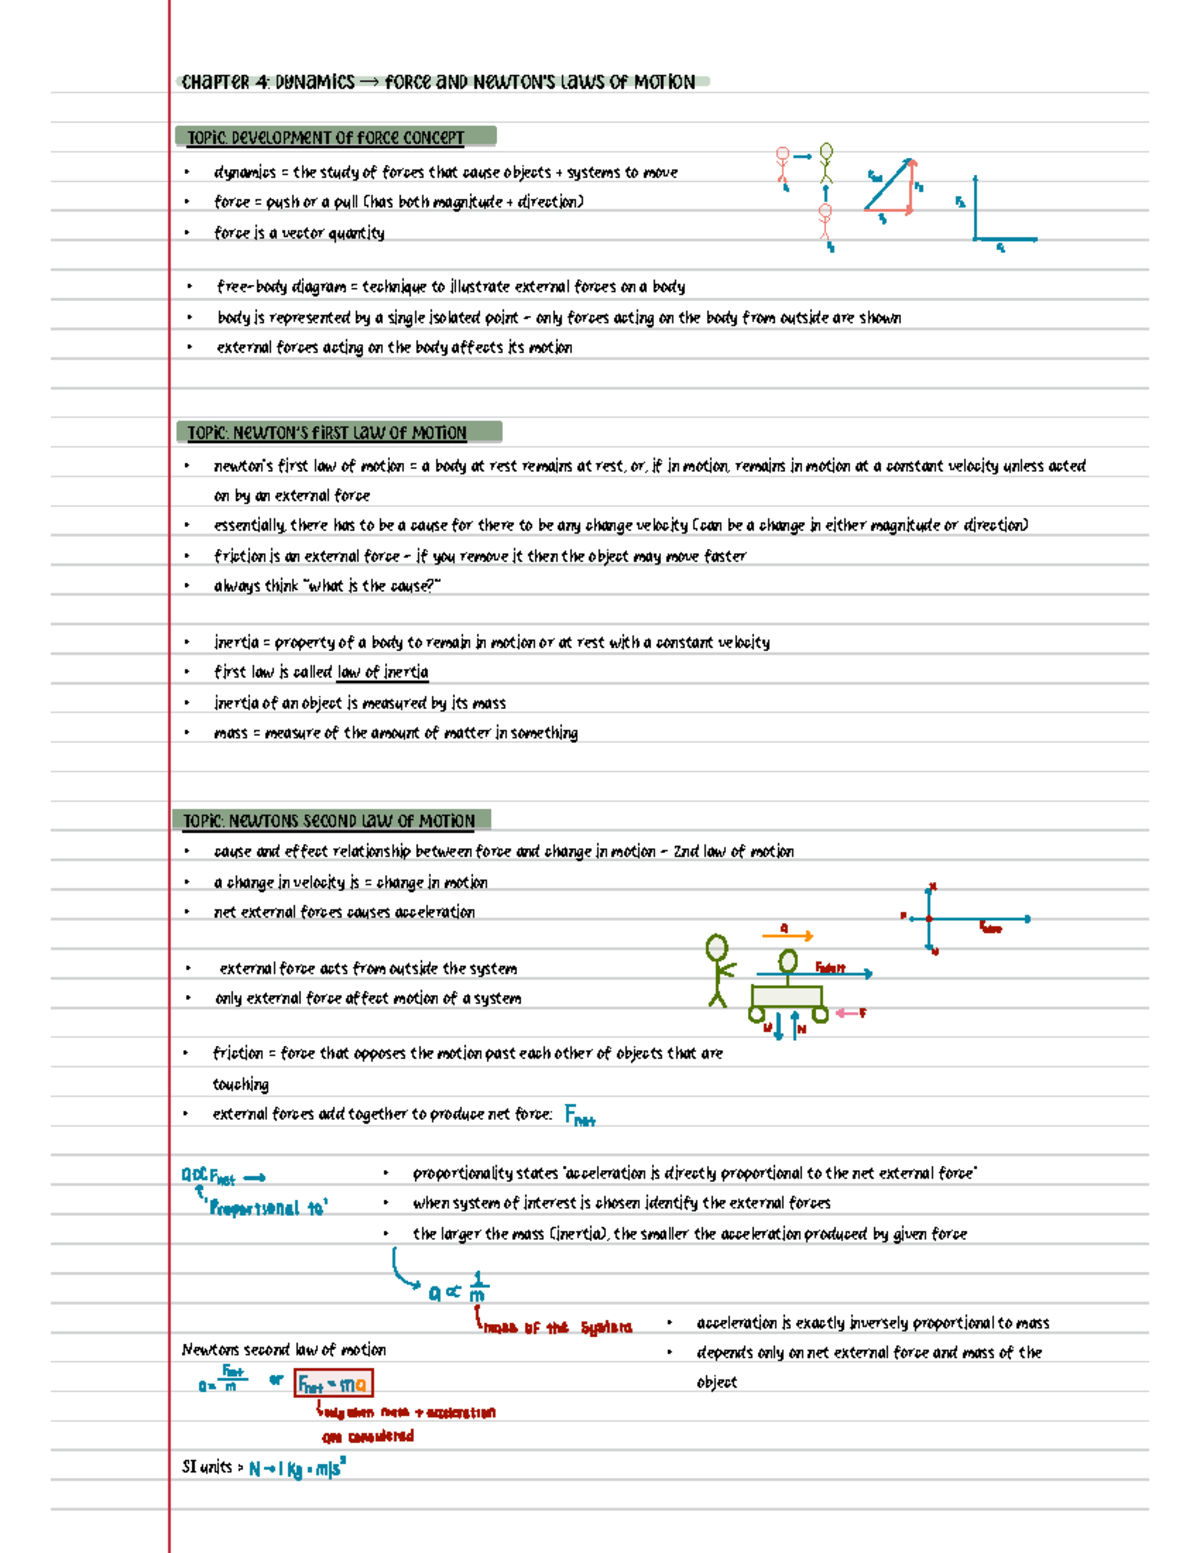 Chapter 4: Dynamics → Force and Newton's Laws of Motion
Topic: Development of Force Concept
• dynamics = the study of forces that cause objects + systems to move
• force = push or a pull (has both magnitude + direction)
• force is a vector quantity
• free-body diagram = technique to illustrate external forces on a body
• body is represented by a single isolated point - only forces acting on the body from outside are shown
• external forces acting on the body affects its motion
Topic: Newton's First Law of Motion
• newton's first law of motion = a body at rest remains at rest, or, if in motion, remains in motion at a constant velocity unless acted
on by an external force
• essentially, there has to be a cause for there to be any change velocity (can be a change in either magnitude or direction)
• friction is an external force - if you remove it then the object may move faster
• always think "what is the cause?"
• inertia = property of a body to remain in motion or at rest with a constant velocity
• first law is called law of inertia
• inertia of an object is measured by its mass
• mass = measure of the amount of matter in something
Topic: Newtons Second Law of Motion
• cause and effect relationship between force and change in motion - 2nd law of motion
• a change in velocity is = change in motion
• net external forces causes acceleration
N
a
• external force acts from outside the system
• only external force affect motion of a system
W N
• friction = force that opposes the motion past each other of objects that are
touching
• external forces add together to produce net force: Fnet
a ∝ Fnet →
"Proportional to"
• proportionality states "acceleration is directly proportional to the net external force"
• when system of interest is chosen identify the external forces
• the larger the mass (inertia), the smaller the acceleration produced by given force
a ∝ 1/m
mass of the System
• acceleration is exactly inversely proportional to mass
• depends only on net external force and mass of the
object
Newtons second law of motion
a = Fnet/m or Fnet = ma
only when mass + acceleration
are considered
SI units > N → 1 Kg • m/s²